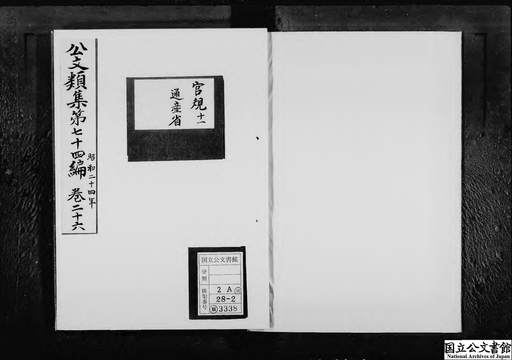 公文類集第七十四編 昭和二十四年 巻二十六
官規十一
通産省
国立公文書館
分類
排架番号
2A
28-2
3338
国立公文書館
National Archives of Japan